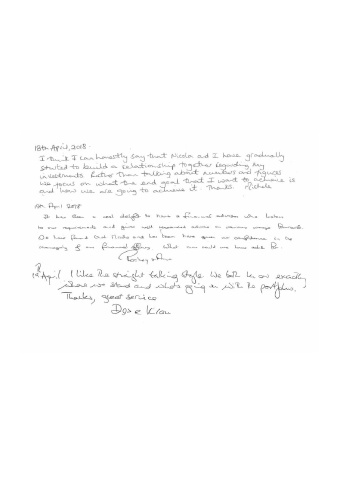 18th April, 2018.
I think I can honestly say that Nicola and I have gradually
started to build a relationship together regarding my
investments. Rather than talking about numbers and figures
we focus on what the end goal that I want to achieve is
and how we are going to achieve it. Thanks. Michele
18th April 2018
It has been a real delight to have a financial advisor who listens
to our requirements and gives
We have found that and her team have given us confidence in the
managing of our financial affairs. What more could we have asked for.
19th April I like the straight talking style. We both know exactly
where we stand and what's going on with the portfolio.
Thanks, great service
Dave